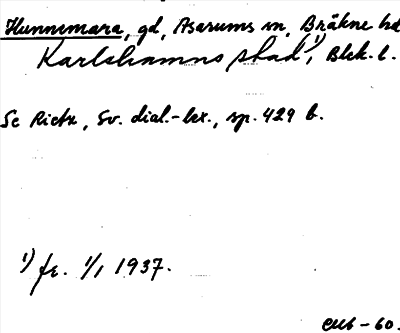 Hunnemara, gd, Asarums sn, Bräkne hd
Karlshamns stad 1), Blek. l.
Se Rietz, Sv. dial.-lex., sp. 429 b.
1) fr. 1/1 1937.
-60.